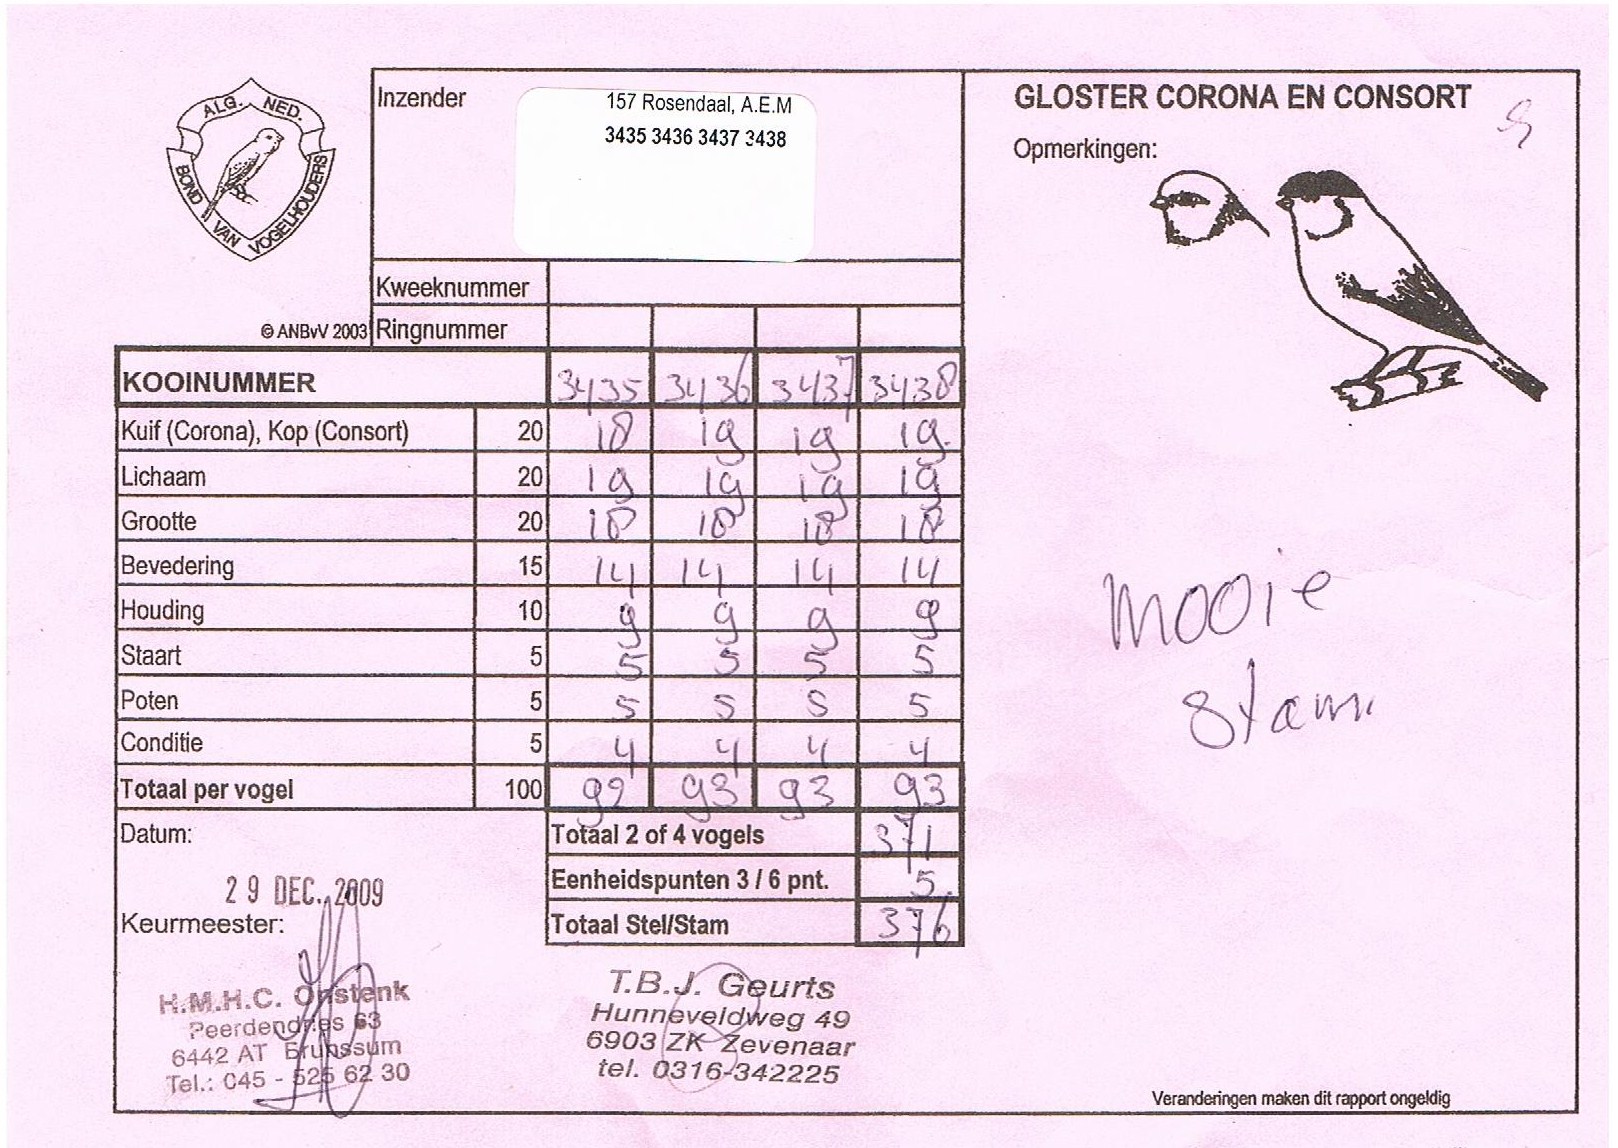 ALG. NED.
BOND VAN VOGELHOUDERS
© ANBvV 2003
Inzender
157 Rosendaal, A.E.M
3435 3436 3437 3438
Kweeknummer
Ringnummer
KOOINUMMER 3435 3436 3437 3438
Kuif (Corona), Kop (Consort) 20 18 19 19 19
Lichaam 20 19 19 19 19
Grootte 20 18 18 18 18
Bevedering 15 14 14 14 14
Houding 10 9 9 9 9
Staart 5 5 5 5 5
Poten 5 5 5 5 5
Conditie 5 4 4 4 4
Totaal per vogel 100 92 93 93 93
Totaal 2 of 4 vogels 371
Eenheidspunten 3 / 6 pnt. 5
Totaal Stel/Stam 376
Datum:
29 DEC. 2009
Keurmeester:
H.M.H.C. Onstenk
Peerdendries 63
6442 AT Brunssum
Tel.: 045 - 525 62 30
T.B.J. Geurts
Hunneveldweg 49
6903 ZK Zevenaar
tel. 0316-342225
GLOSTER CORONA EN CONSORT
Opmerkingen:
Mooie
Stam.
Veranderingen maken dit rapport ongeldig